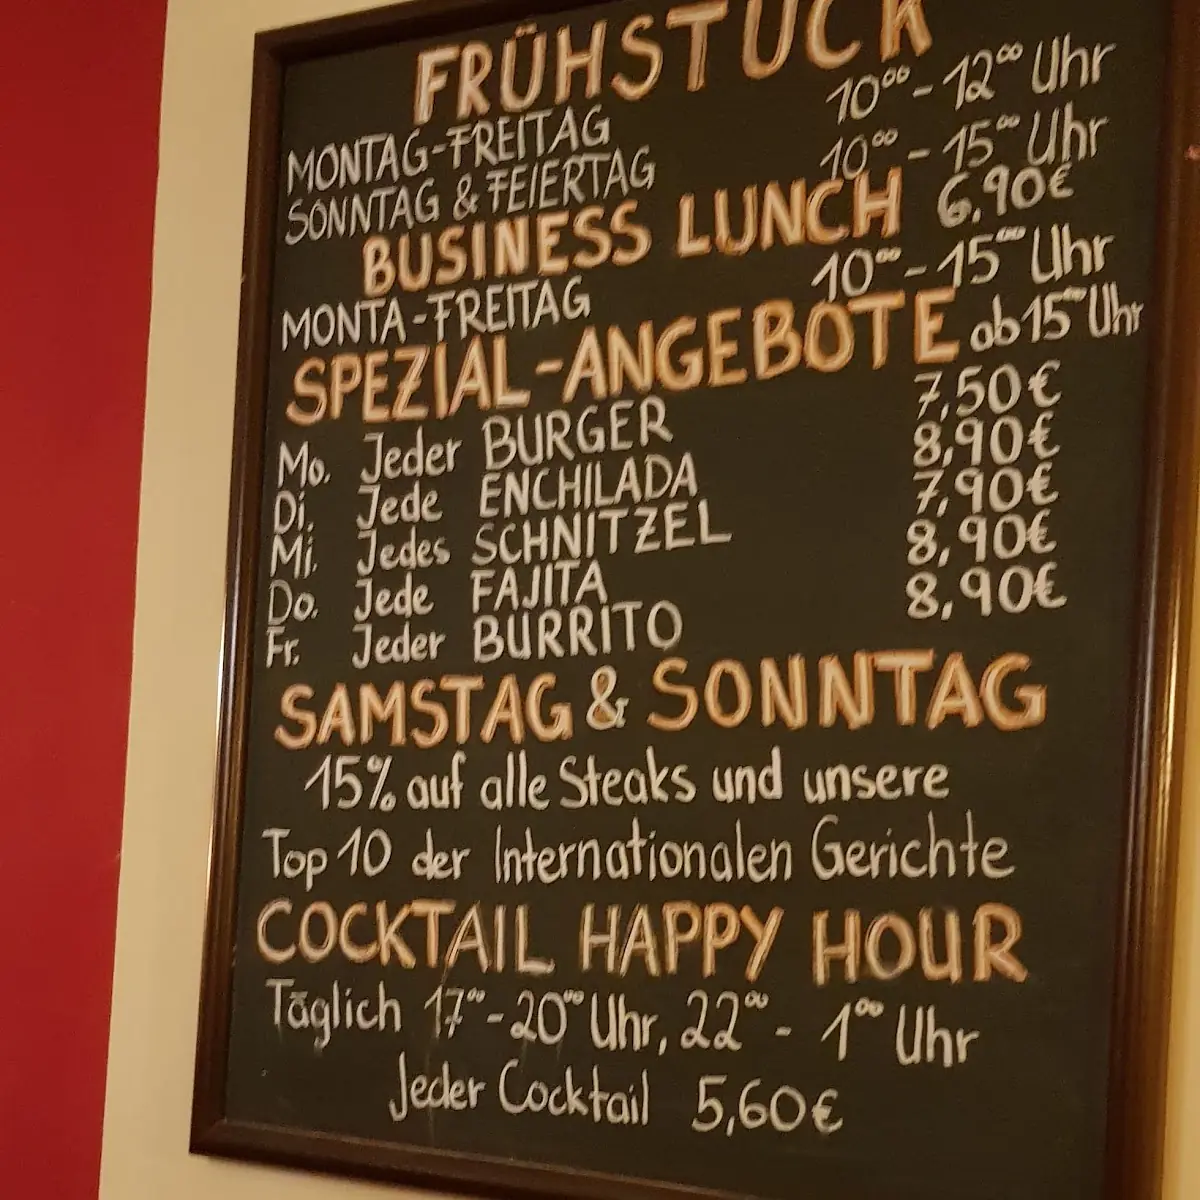 FRÜHSTÜCK
MONTAG-FREITAG 10⁰⁰-12⁰⁰ Uhr
SONNTAG & FEIERTAG 10⁰⁰-15⁰⁰ Uhr
BUSINESS LUNCH 6,90€
MONTA-FREITAG 10⁰⁰-15⁰⁰ Uhr
SPEZIAL-ANGEBOTE ab 15⁰⁰ Uhr
Mo. Jeder BURGER 7,50€
Di. Jede ENCHILADA 8,90€
Mi. Jedes SCHNITZEL 7,90€
Do. Jede FAJITA 8,90€
Fr. Jeder BURRITO 8,90€
SAMSTAG & SONNTAG
15% auf alle Steaks und unsere
Top 10 der Internationalen Gerichte
COCKTAIL HAPPY HOUR
Täglich 17⁰⁰-20⁰⁰ Uhr, 22⁰⁰- 1⁰⁰ Uhr
Jeder Cocktail 5,60€